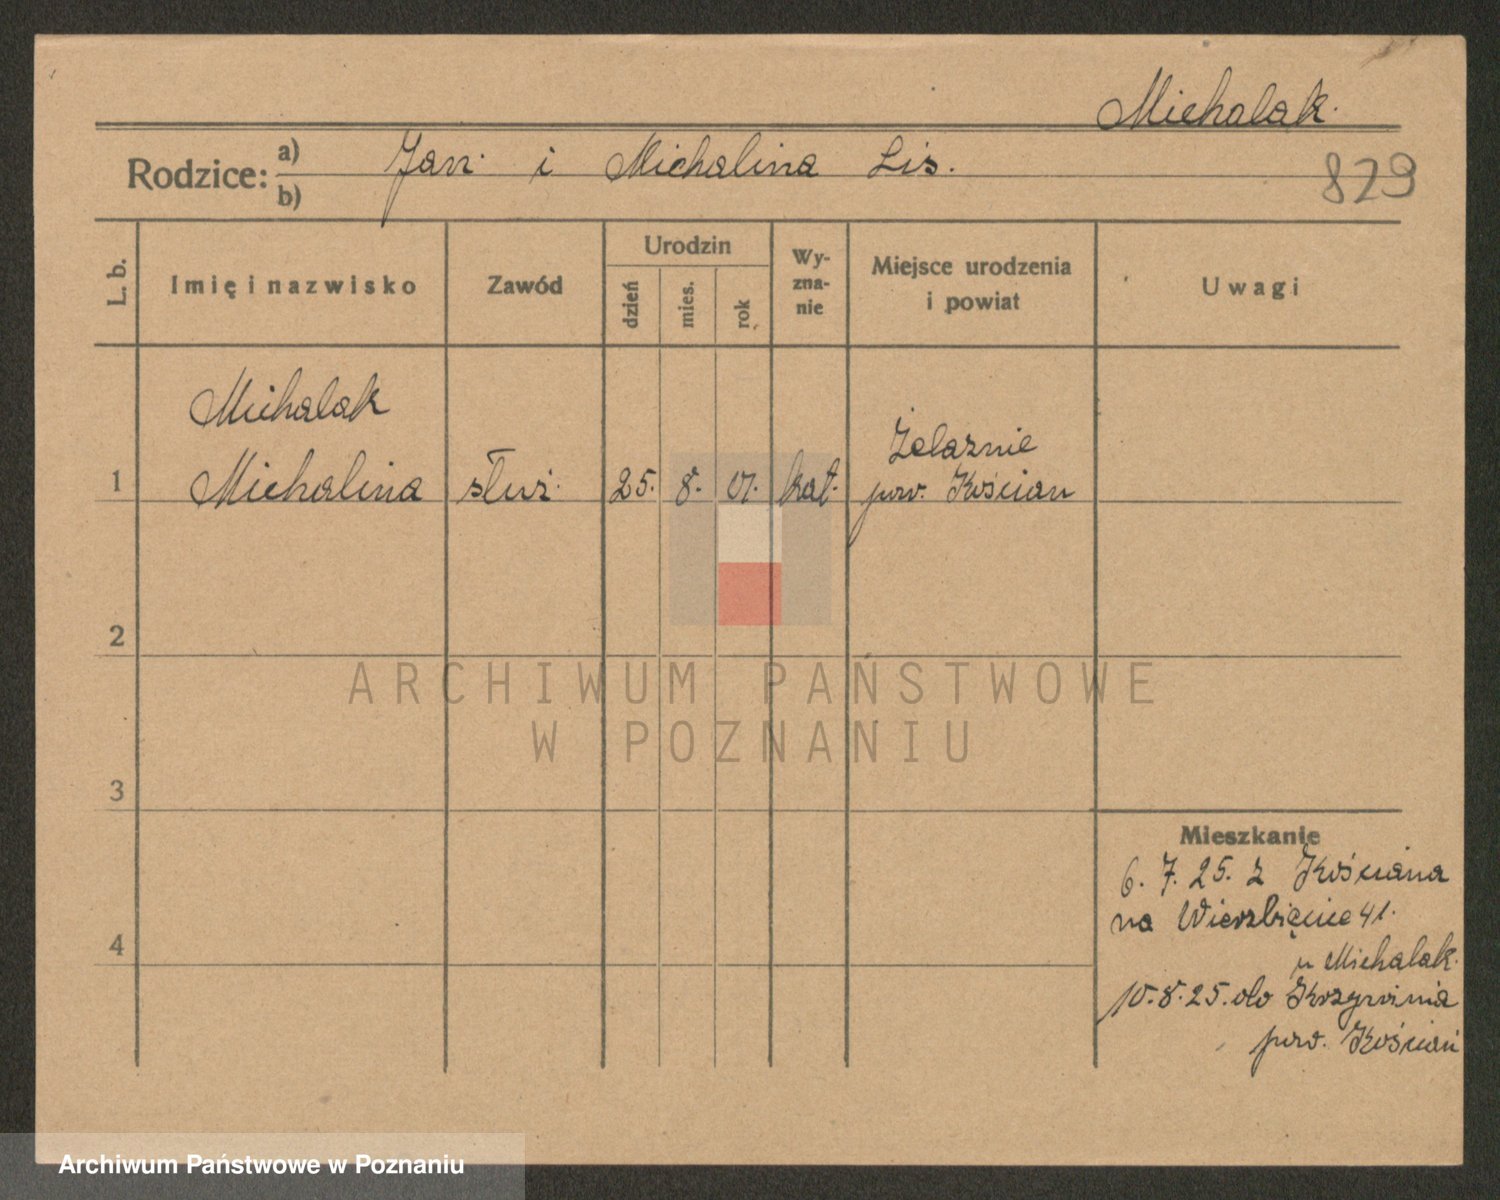 Michalak.
Rodzice: a) Jan i Michalina Lis.
b)
829
L. b.
Imię i nazwisko
Zawód
Urodzin
dzień
mies.
rok
Wy-
zna-
nie
Miejsce urodzenia
i powiat
Uwagi
Michalak
1 Michalina służ. 25. 8. 07. kat. Żelaznie
pow. Kościan
2
ARCHIWUM PAŃSTWOWE
W POZNANIU
3
Mieszkanie
6. 7. 25. z Kościana
na Wierzbięcice 41.
4
u Michalak.
10. 8. 25. do Krzywinia
pow. Kościan
Archiwum Państwowe w Poznaniu